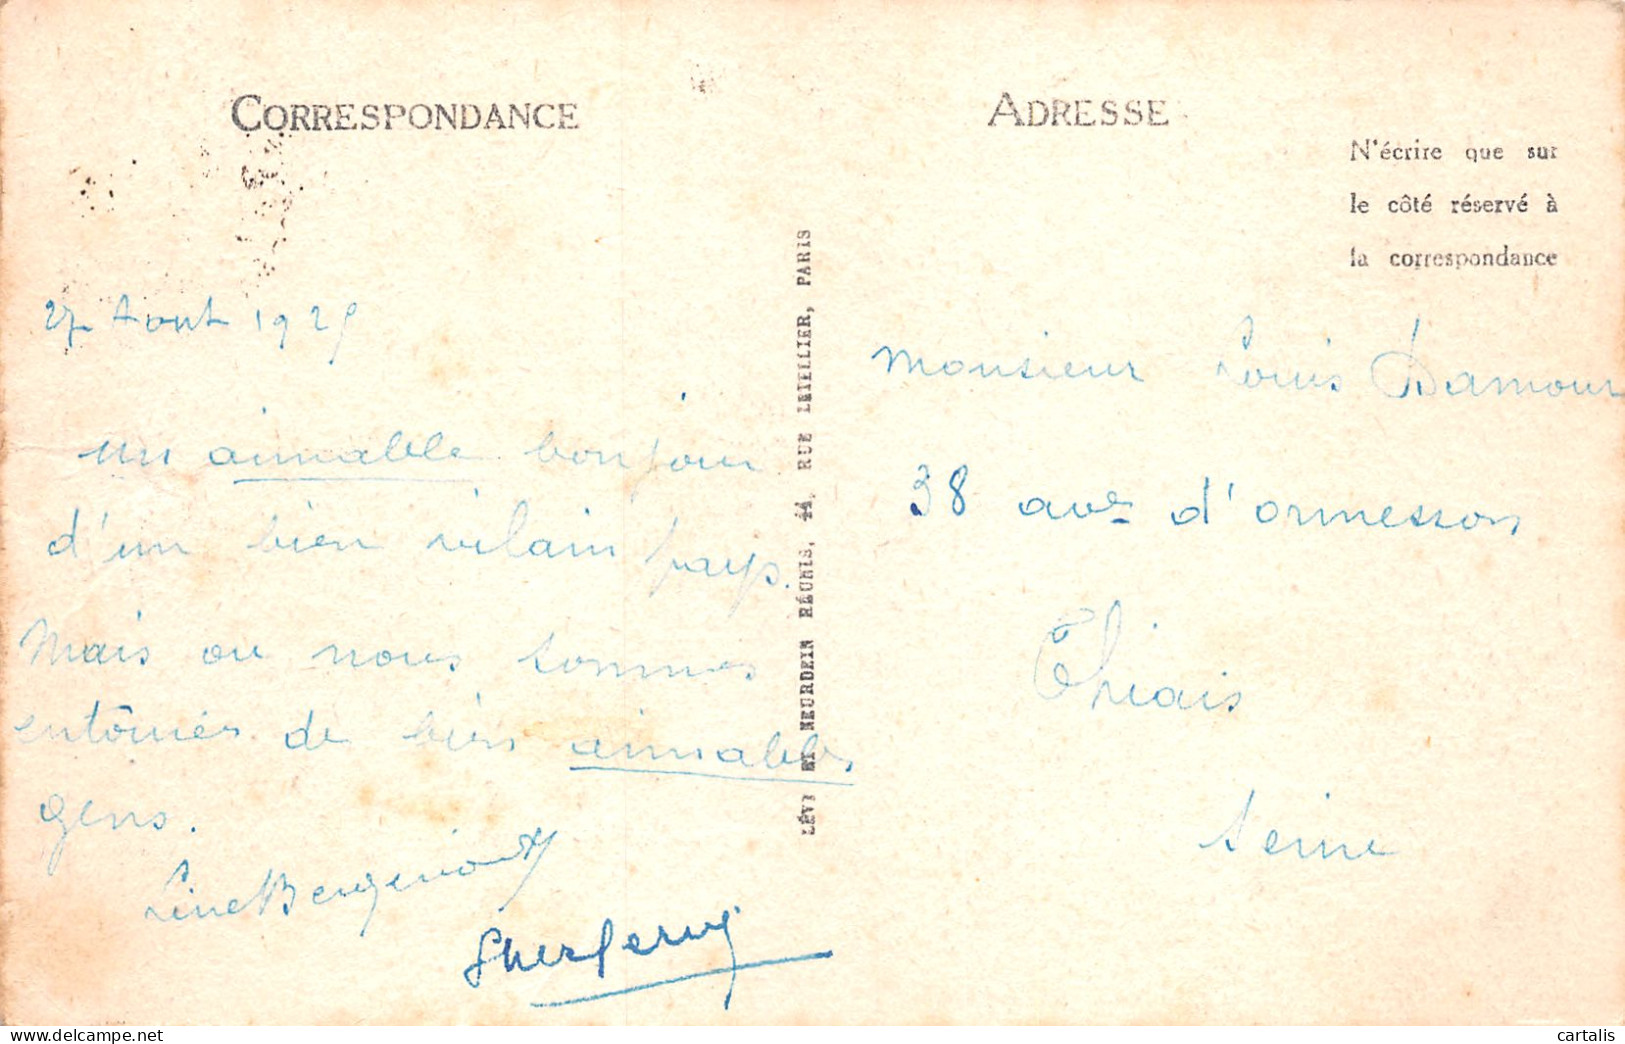 CORRESPONDANCE
27 Aout 1925
un aimable bonjour
d'un bien vilain pays.
Mais ou nous sommes
entourés de biens aimables
gens.
Line
LÉVY ET NEURDEIN RÉUNIS, 44, RUE LETELLIER, PARIS
ADRESSE
N'écrire que sur
le côté réservé à
la correspondance
Monsieur Louis Damour
38 ave d'ormesson
Thiais
Seine
cartalis